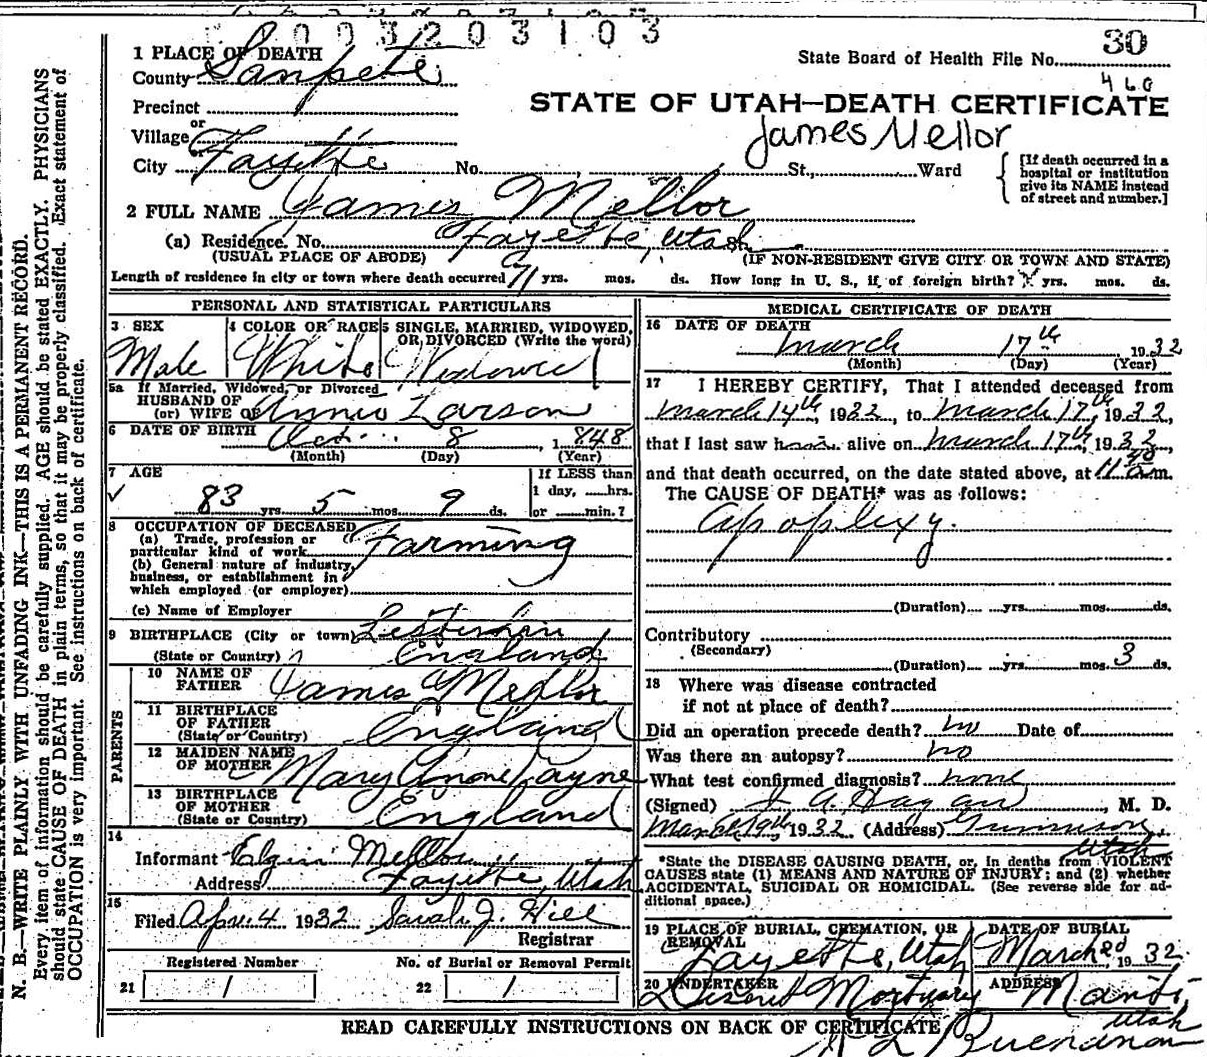 003203103
30
1 PLACE OF DEATH
State Board of Health File No.
County Sanpete
460
Precinct
STATE OF UTAH—DEATH CERTIFICATE
or
Village
James Mellor
or
City Fayette No. St., Ward
[If death occurred in a
hospital or institution
give its NAME instead
of street and number.]
2 FULL NAME James Mellor
(a) Residence. No. Fayette, Utah
(USUAL PLACE OF ABODE) (IF NON-RESIDENT GIVE CITY OR TOWN AND STATE)
Length of residence in city or town where death occurred 71 yrs. mos. ds. How long in U. S., if of foreign birth? yrs. mos. ds.
PERSONAL AND STATISTICAL PARTICULARS
3 SEX
Male
4 COLOR OR RACE
White
5 SINGLE, MARRIED, WIDOWED,
OR DIVORCED (Write the word)
Widowed
5a If Married, Widowed, or Divorced
HUSBAND OF
(or) WIFE OF Annie Larson
6 DATE OF BIRTH Oct. 8, 1848
(Month) (Day) (Year)
7 AGE
If LESS than
1 day, hrs.
or min.?
83 yrs. 5 mos. 9 ds.
8 OCCUPATION OF DECEASED
(a) Trade, profession or
particular kind of work Farming
(b) General nature of industry,
business, or establishment in
which employed (or employer)
(c) Name of Employer
9 BIRTHPLACE (City or town)
(State or Country) England
PARENTS
10 NAME OF
FATHER James Mellor
11 BIRTHPLACE
OF FATHER
(State or Country) England
12 MAIDEN NAME
OF MOTHER Mary Ann Payne
13 BIRTHPLACE
OF MOTHER
(State or Country) England
14
Informant Elgin Mellor
Address Fayette, Utah
15
Filed Apr. 4 1932 Sarah J. Hill
Registrar
Registered Number No. of Burial or Removal Permit
21 1 22 1
MEDICAL CERTIFICATE OF DEATH
16 DATE OF DEATH
March 17th 1932
(Month) (Day) (Year)
17 I HEREBY CERTIFY, That I attended deceased from
March 14th, 1932, to March 17th, 1932,
that I last saw h alive on March 17th, 1932
and that death occurred, on the date stated above, at 11 m.
The CAUSE OF DEATH* was as follows:
Apoplexy.
(Duration) yrs. mos. ds.
Contributory
(Secondary)
(Duration) yrs. mos. 3 ds.
18 Where was disease contracted
if not at place of death?
Did an operation precede death? no Date of
Was there an autopsy? no
What test confirmed diagnosis? none
(Signed) A. Hagan, M. D.
March 19th 1932 (Address) Gunnison,
Utah
*State the DISEASE CAUSING DEATH, or, in deaths from VIOLENT
CAUSES state (1) MEANS AND NATURE OF INJURY; and (2) whether
ACCIDENTAL, SUICIDAL OR HOMICIDAL. (See reverse side for ad-
ditional space.)
19 PLACE OF BURIAL, CREMATION, OR
REMOVAL
Fayette, Utah
DATE OF BURIAL
March 1932
20 UNDERTAKER
Deseret Mortuary
ADDRESS
Manti,
Utah
READ CAREFULLY INSTRUCTIONS ON BACK OF CERTIFICATE
Buchanan
N. B.—WRITE PLAINLY WITH UNFADING INK—THIS IS A PERMANENT RECORD.
Every item of information should be carefully supplied. AGE should be stated EXACTLY. PHYSICIANS
should state CAUSE OF DEATH in plain terms, so that it may be properly classified. Exact statement of
OCCUPATION is very important. See instructions on back of certificate.